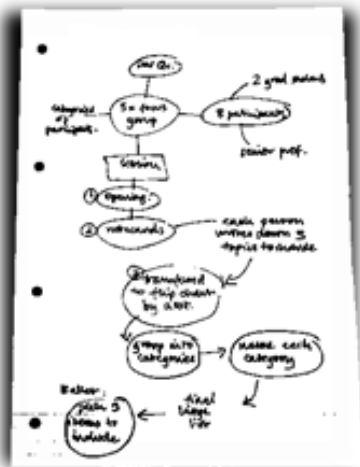 categories
of
participants.
3x focus
group
8 participants
2 grad students
senior prof.
Session
① opening
② notecards
each person
writes down 3
topics to include
transferred
to flip chart
by asst.
group into
categories
name each
category
final
list
pick 5
items to
include